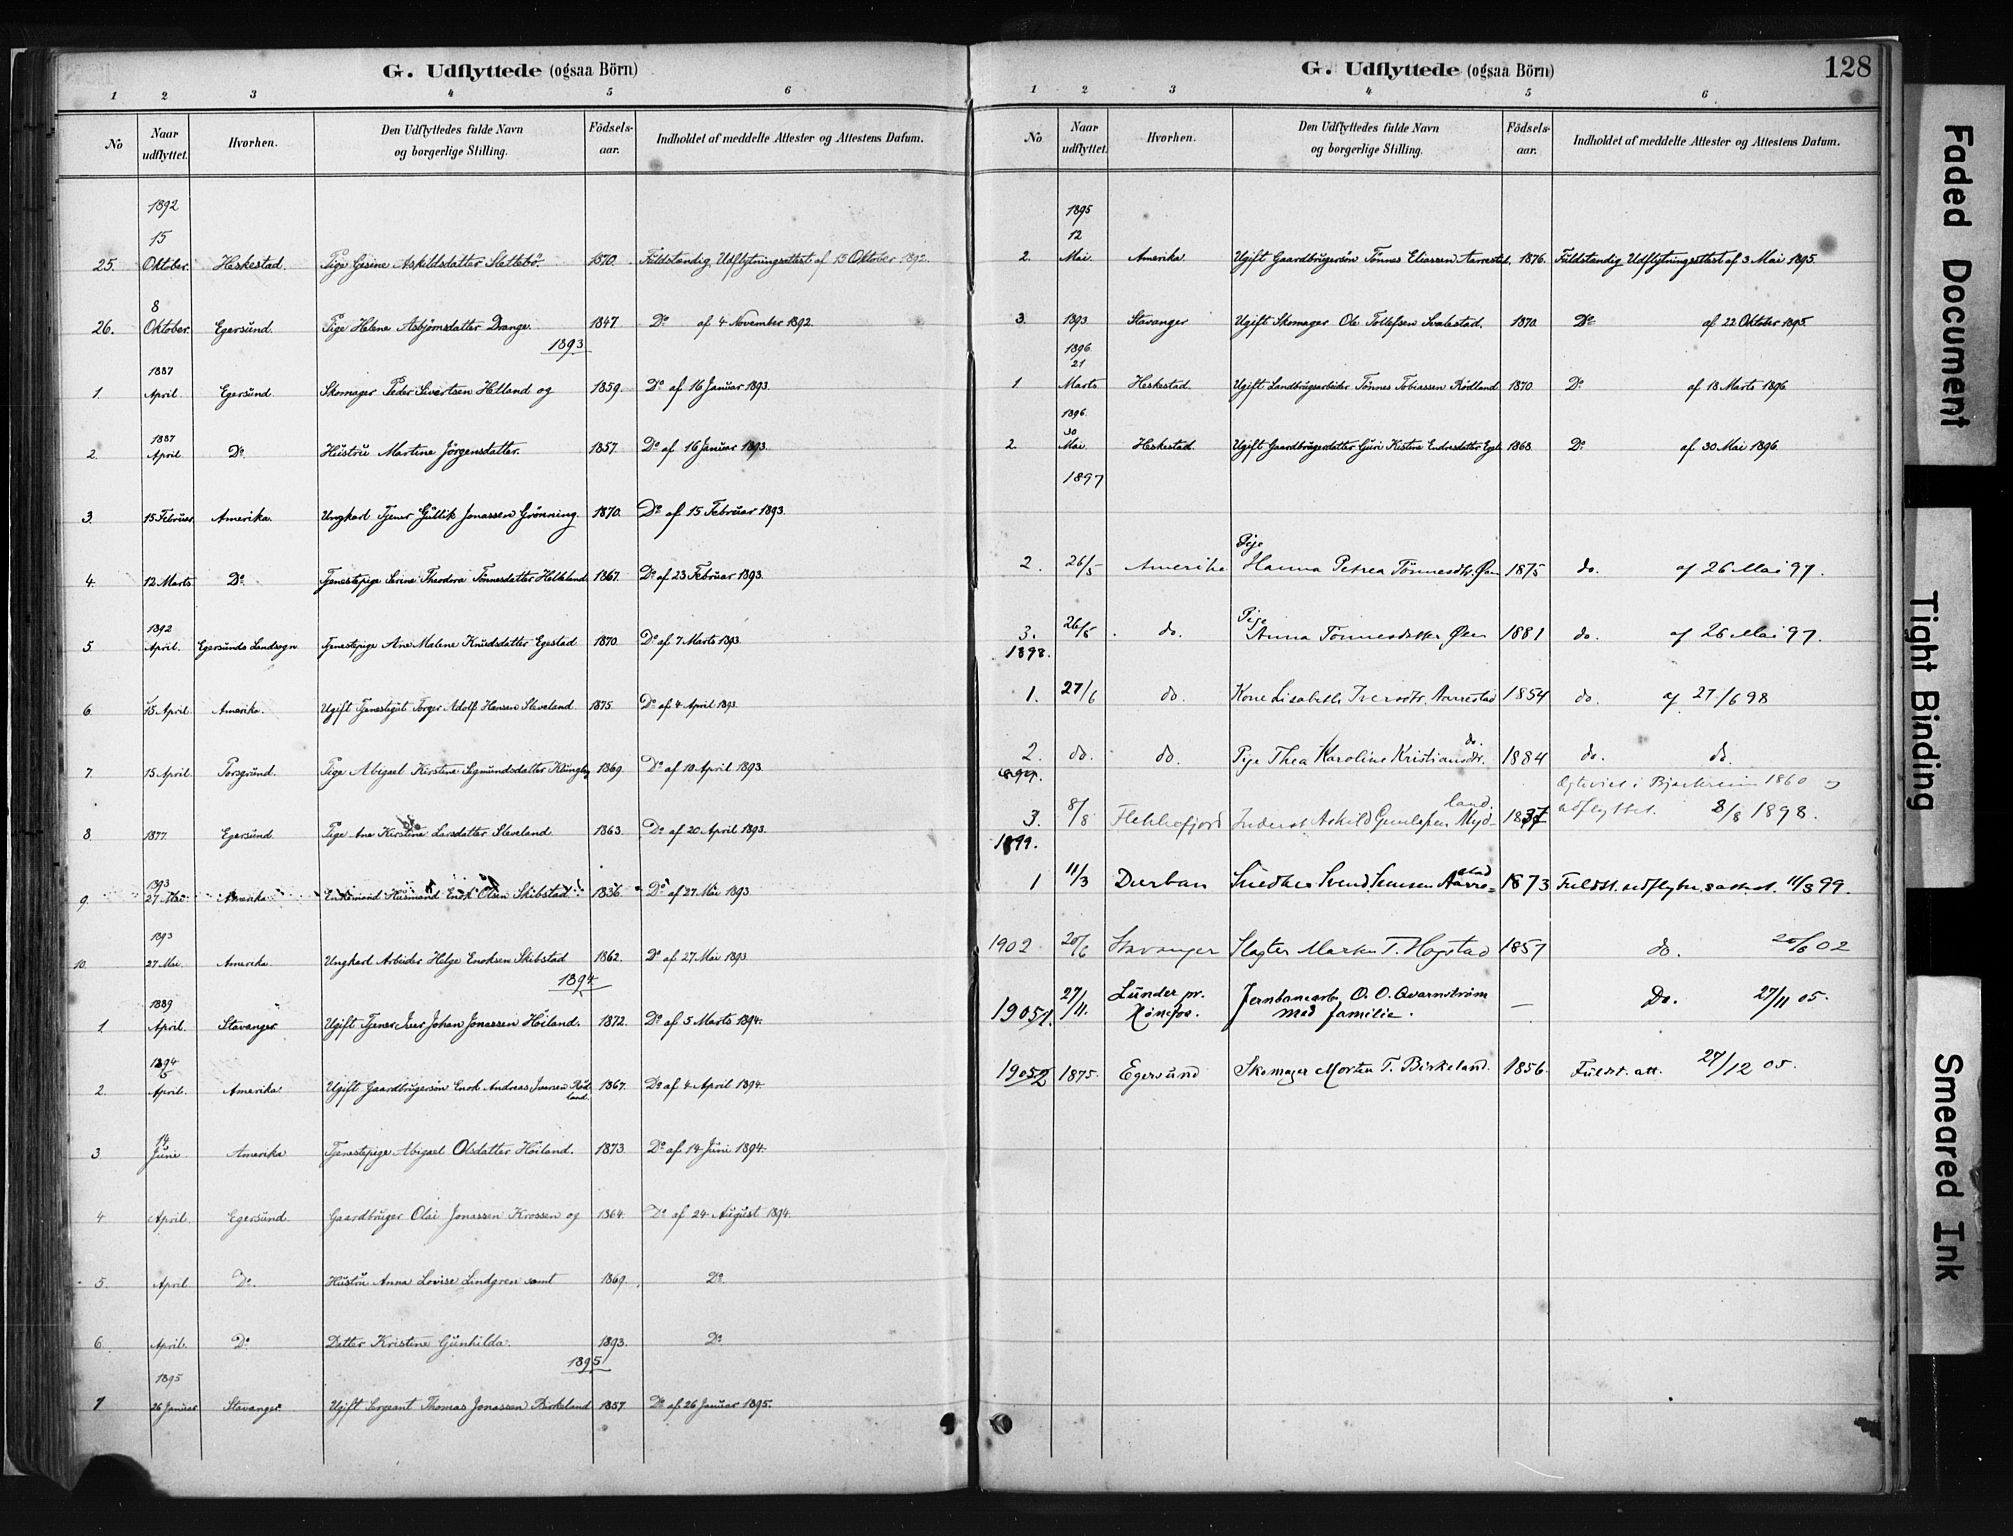 G. Udflyttede (ogsaa Börn)
1 2 3 4 5 6
No Naar udflyttet. Hvorhen. Den Udflyttedes fulde Navn og borgerlige Stilling. Födsels-aar. Indholdet af meddelte Attester og Attestens Datum.
1892
15
25. Oktober. Heskestad. Pige Gesine Askildsdatter Slettebö. 1870. Fuldstændig Udflytningsattest af 15 Oktober 1892.
8
26. Oktober. Egersund. Pige Helene Asbjörnsdatter Drange. 1847 Do af 4 November 1892.
1893
1887
1. April. Egersund Skomager Peder Sivertsen Helland og 1859. Do af 16 Januar 1893.
1887
2. April. Do. Hustru Martine Jörgensdatter. 1857. Do af 16 Januar 1893.
3. 15 Februar Amerika. Ungkarl Tjener Gullik Jonassen Grönning. 1870. Do af 15 Februar 1893.
4. 12 Marts Do. Tjenestepige Serine Theodora Tönnesdatter Helleland 1867. Do af 23 Februar 1893.
1892
5 April. Egersunds Landsogn Tjenestepige Ane Malene Knudsdatter Egestad 1870. Do af 7 Marts 1893.
6. 15 April Amerika. Ugift Tjenestegut Torger Adolf Hansen Sleveland. 1875. Do af 4 April 1893.
7. 15 April. Porsgrund. Pige Abigael Kirstine Sigmundsdatter 1869. Do af 10 April 1893.
8 1877. Egersund Pige Ane Kirstine Larsdatter Sleveland 1863. Do af 20 April 1893.
1893
9. 27 Mai Amerika Enkemand Husmand Enok Olsen Skibstad 1836 Do af 27 Mai 1893
1893
10. 27 Mai. Amerika Ungkarl Arbeider Helge Enoksen Skibstad 1862. Do af 27 Mai 1893
1894
1889
1 April. Stavanger. Ugift Tjener Iver Johan Jonassen Höiland. 1872. Do af 5 Marts 1894.
1894
5
2. April. Amerika Ugift Gaardbrugersön Enok Andreas Iversen Röd-
land. 1867. Do af 4 April 1894.
14
3 Juni Amerika Tjenestepige Abigael Olsdatter Höiland. 1873. Do af 14 Juni 1894.
4. April. Egersund. Gaardbruger Olai Jonassen Krossen og 1864. Do af 24 August 1894.
5. April Do. Hustru Anna Lovise Lindgren samt 1869. Do
6. April. Do. Datter Kristine Gunhilda. 1893. Do
1895
1895
1 26 Januar Stavanger. Ugift Sergeant Thomas Jonassen Birkeland 1857. Do af 26 Januar 1895.
G. Udflyttede (ogsaa Börn) 128
1 2 3 4 5 6
No Naar udflyttet. Hvorhen. Den Udflyttedes fulde Navn og borgerlige Stilling. Födsels-aar. Indholdet af meddelte Attester og Attestens Datum.
1895
12
2. Mai. Amerika. Ugift Gaardbrugersön Tönnes Eliassen Aarrestad. 1876. Fuldstændig Udflytningsattest af 3 Mai 1895.
3. 1893. Stavanger Ugift Skomager Ole Tollefsen Svalestad. 1870. Do af 22 Oktober 1895.
1896
21
1. Marts Heskestad. Ugift Landbrugsarbeider Tönnes Tobiassen Rödland 1870. Do af 18 Marts 1896.
1896.
30
2. Mai. Heskestad. Ugift Gaardbrugerdatter Guri Kistine Endresdatter 1868. Do af 30 Mai 1896.
1897
Pige
2. 26/5 Amerika Hanna Petrea Tönnesdtr. Øen 1875 do. af 26 Mai 97.
Pige
3. 26/5 do. Anna Tönnesdatter Øen 1881 do. af 26 Mai 97.
1898.
1. 27/6 do. Kone Lisabeth Iversdtr. Aarrestad 1854 do. af 27/6 98
2. do. do. Pige Thea Karoline Kristiansdtr. do. 1884 do. do.
Bjerkreim 1860
3. 8/8 Flekkefjord Inderst Askild Gunlafsen Myd-
land 1837 udflyttet. 8/8 1898.
1899.
1 11/3 Durban Snedker Svend Aarre=
stad 1873 Fuldst. udflytn.sattest. 11/3 99.
1902 20/6 Stavanger Slagter T. Hogstad 1857 do. 20/6 02
1905 1. 27/11. Lunder pr. Hönefos. Jernbanearb. O. O. Qvarnström
med familie. — Do. 27/11 05.
1905 2 1875. Egersund Skomager Morten T. Birkeland. 1856. Fuldst. att. 27/12 05.
Faded Document
Tight Binding
Smeared Ink